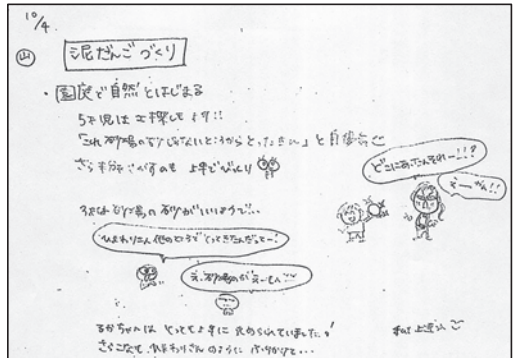 10/4
山
泥だんごづくり
・園庭で自然とはじまる
5才児は土探しも上手!!
「これ砂場の砂じゃないところからとったきたん」と自慢気
さら粉さがすのも上手でびっくり
どこにあったんそれー!!?
3才は砂場の砂がいいようで…
ひまわりさん他のところでとってきたんだってー!
え、砂場のがえーもん!!
るかちゃんは とっても上手に丸められていました!
さらこなも、ひまわりさんのように ふりかけて…